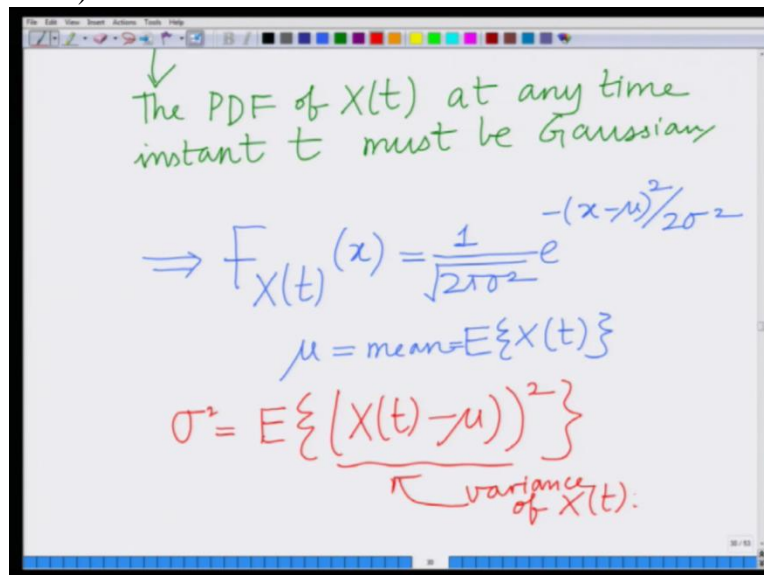 )
File Edit View Insert Actions Tools Help
B I
The PDF of X(t) at any time
instant t must be Gaussian
⇒ F_{X(t)}(x) = \frac{1}{\sqrt{2πσ^2}} e^{-(x-μ)^2/2σ^2}
μ = mean = E{X(t)}
σ² = E{(X(t)-μ))²}
variance
of X(t).
30 / 53
30